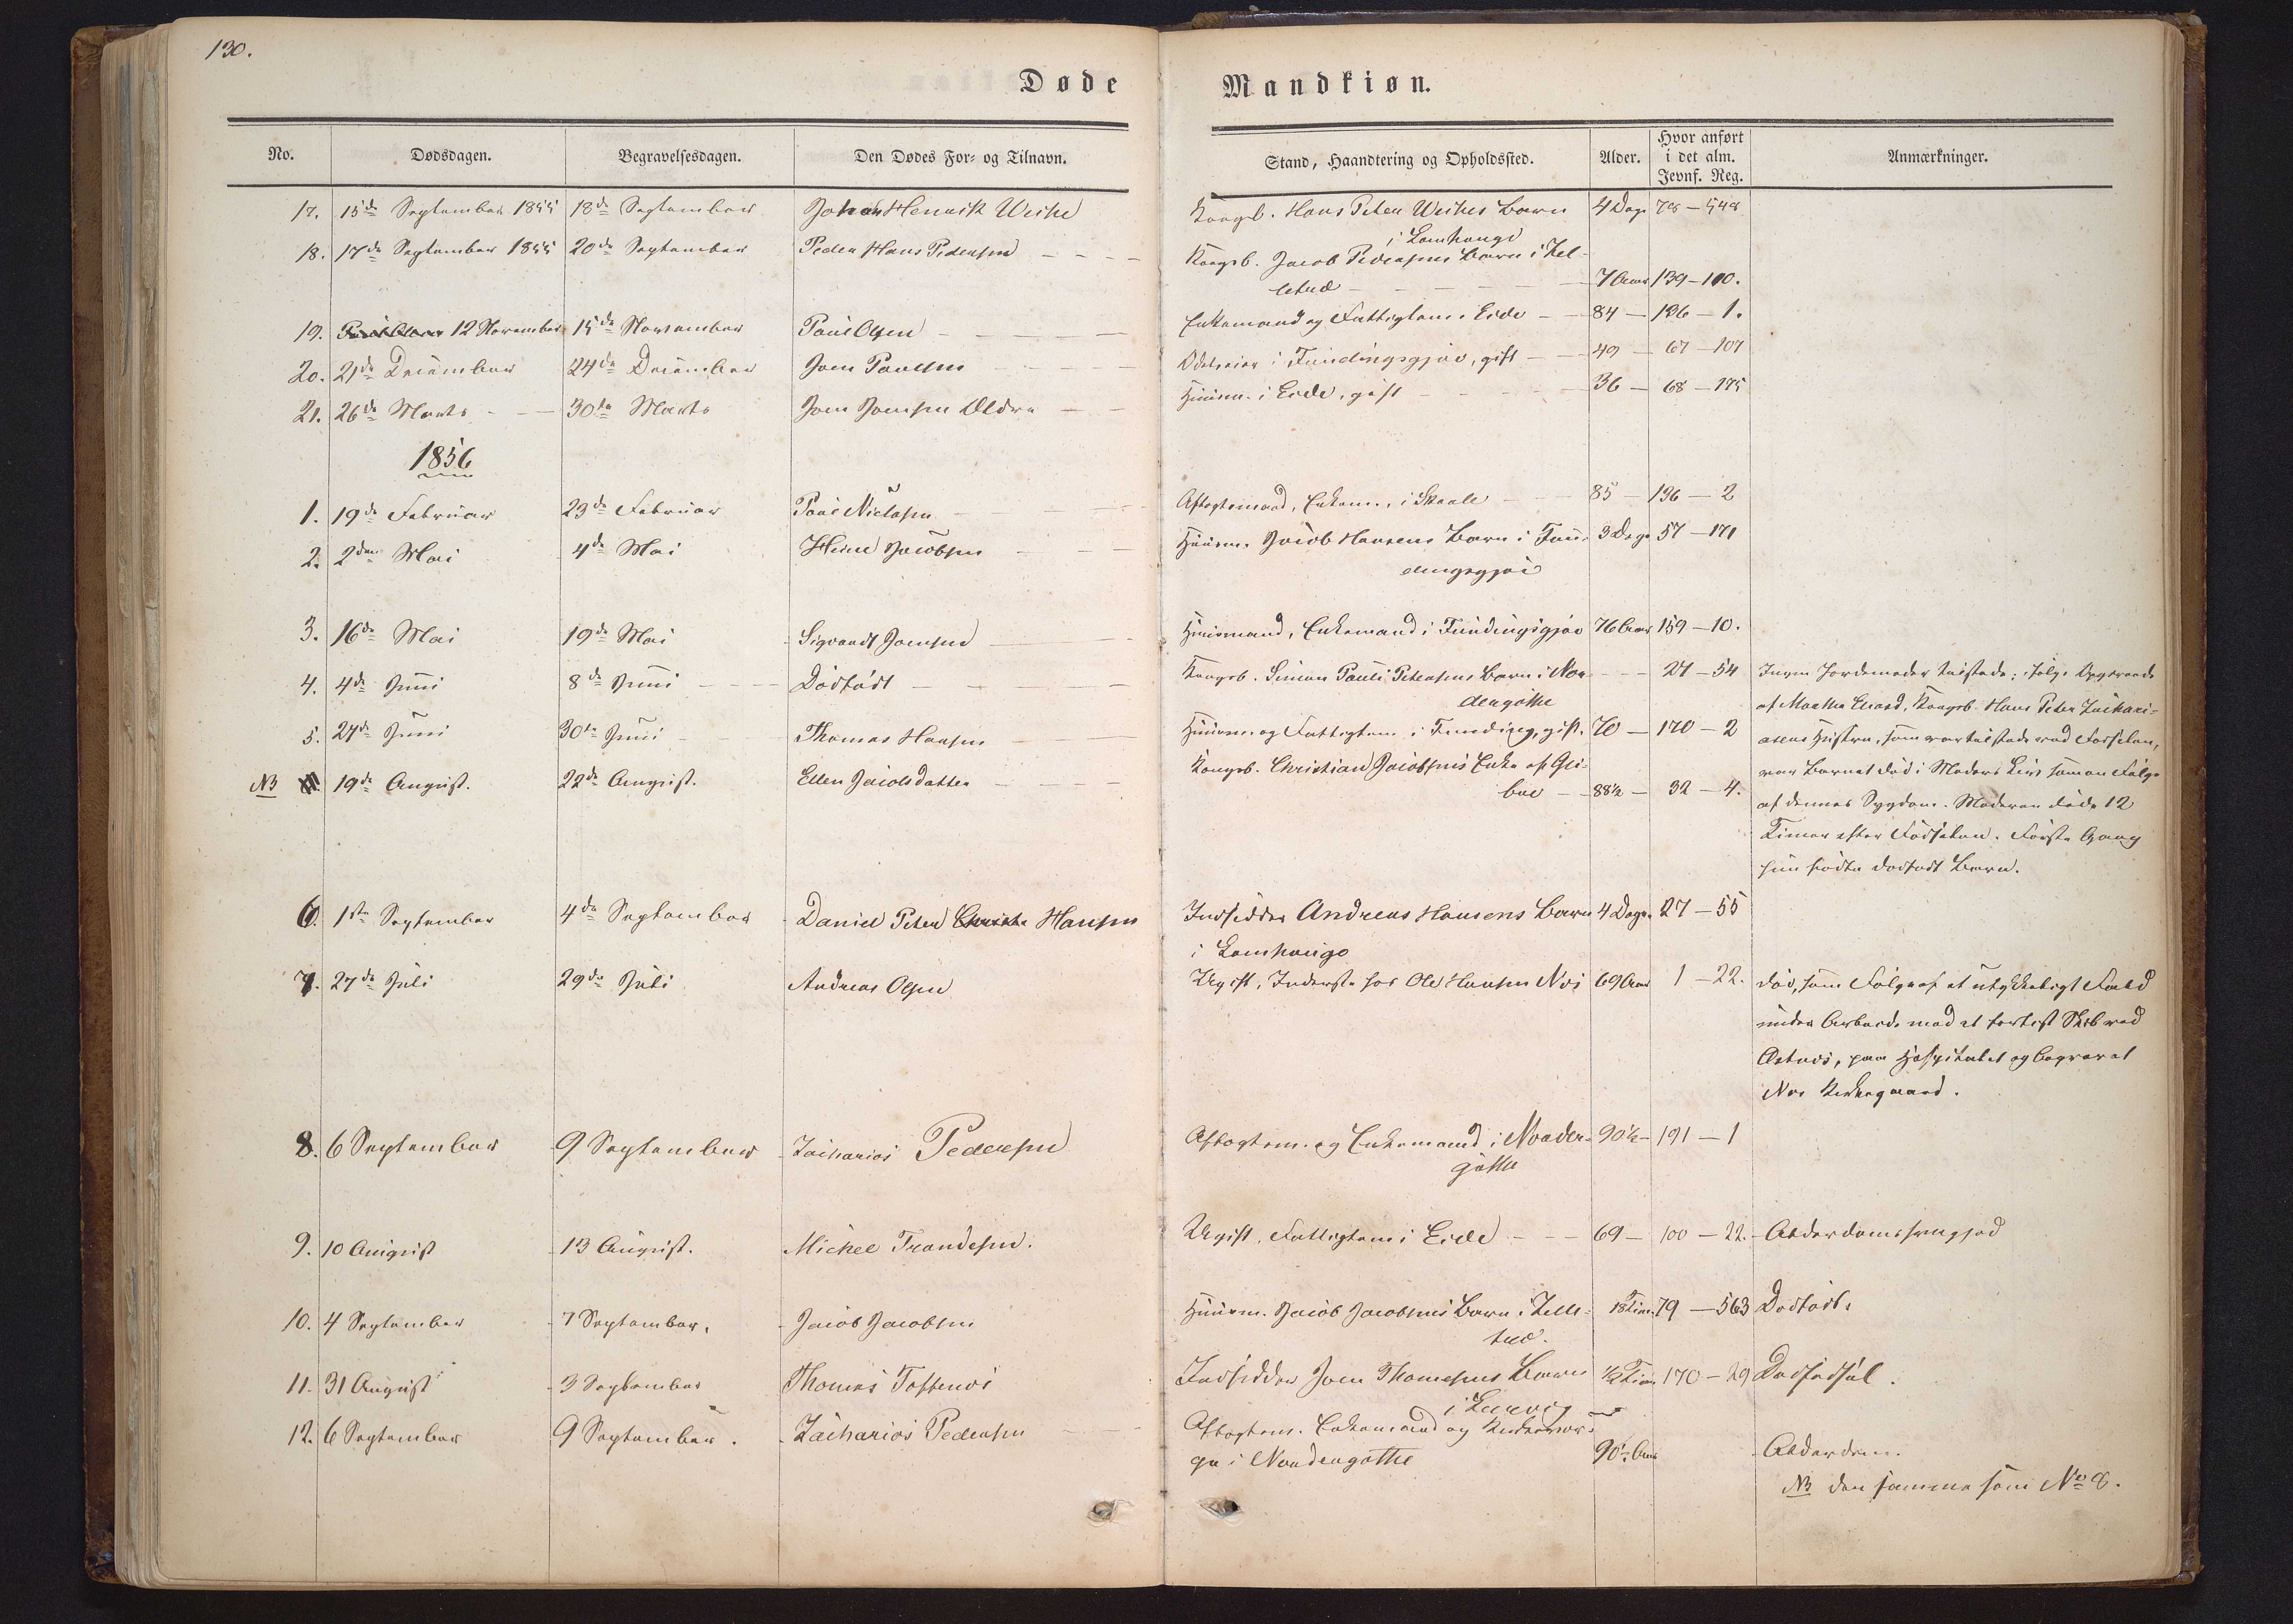 130.
Døde Mandkiøn.
No. Dødsdagen. Begravelsesdagen. Den Dødes For- og Tilnavn. Stand, Haandtering og Opholdssted. Alder. Hvor anført i det alm. Jevnf. Reg. Anmærkninger.
17. 15de September 1855 18de September Johan Henrik Weihe Kongsb. Hans Peter Weihes Barn 4 Dage 78 — 548
i Lamhauge
18. 17de September 1855 20de September Peder Hans Pedersen Kongsb. Jacob Pedersens Barn i Zel-
letræ 7 Aar 139 — 110.
19. 12 November 15de November Poul Olsen Enkemand og Fattiglem i Eide 84 — 136 — 1.
20. 21de December 24de December Joen Poulsen Odelseier i Fundingsgjov, gift 49 — 67 — 107
21. 26de Marts 30te Marts Joen Joensen Ældre Huusm. i Eide, gift 36 — 68 — 175
1856
1. 19de Februar 23de Februar Poul Niclasen Aftægtsmand, Enkem., i Skaale 85 — 136 — 2
2. 2den Mai 4de Mai Heine Jacobsen Huusm. Jacob Hansens Barn i Fun- 3 Dage 57 — 171
dingsgjov
3. 16de Mai 19de Mai Sigvardt Joensen Huusmand, Enkemand i Fundingsgjov 76 Aar 159 — 10.
4. 4de Juni 8de Juni Dødfødt Kongsb. Simon Pauli Petersens Barn i Nor- 27 — 54 Ingen Jordemoder tilstede; ifølge Opgivende
dergøthe af Kongsb. Hans Peter Zachari-
5. 27de Juni 30te Juni Thomas Hansen Huusm. og Fattiglem i Funding, gift. 70 — 170 — 2 asens Hustru, som var tilstede ved Fødselen,
NB 19de August. 22de August. Ellen Jacobsdatter Kongsb. Christian Jacobsens Enke af Gli- var Barnet død i Moders Liv som en Følge
bre 88½ — 32 — 4. af dennes Sygdom. Moderen døde 12
Timer efter Fødselen. Første Gang
hun fødte dødfødt Barn.
6. 1ste September 4de September Daniel Peter Hansen Indsidder Andreas Hansens Barn 4 Dage 27 — 55
i Lamhauge
7. 27de Juli 29de Juli Andreas Olsen Ugift, Inderste hos Ole Hansen Næs 69 Aar 1 — 22. død, som Følge af et ulykkeligt Fald
under Arbeide med et forlist Skib ved
paa Hospitalet og begravet
Næs Kirkegaard.
8. 6 September 9 September Zacharias Pedersen Aftægtsm. og Enkemand i Norder- 90½ — 191 — 1
gøthe
9. 10 August 13 August. Michel Trondesen. Ugift, Fattiglem i Eide 69 — 100 — 22. Alderdomssvaghed
10. 4 September 7 September. Jacob Jacobsen Huusm. Jacob Jacobsens Barn i Zelle- 18 Timer 79 — 563 Dødfødt.
træ.
11. 31 August 3 September Thomas Indsidder Joen Thomesens Barn ½ Time 170 — 29
i Leervig
12. 6 September 9 September. Zacharias Pedersen Aftægtsm. Enkemand og Kirkevær-
ge i Nordergøthe 90½ Aar Alderdom.
NB den samme som No 8.